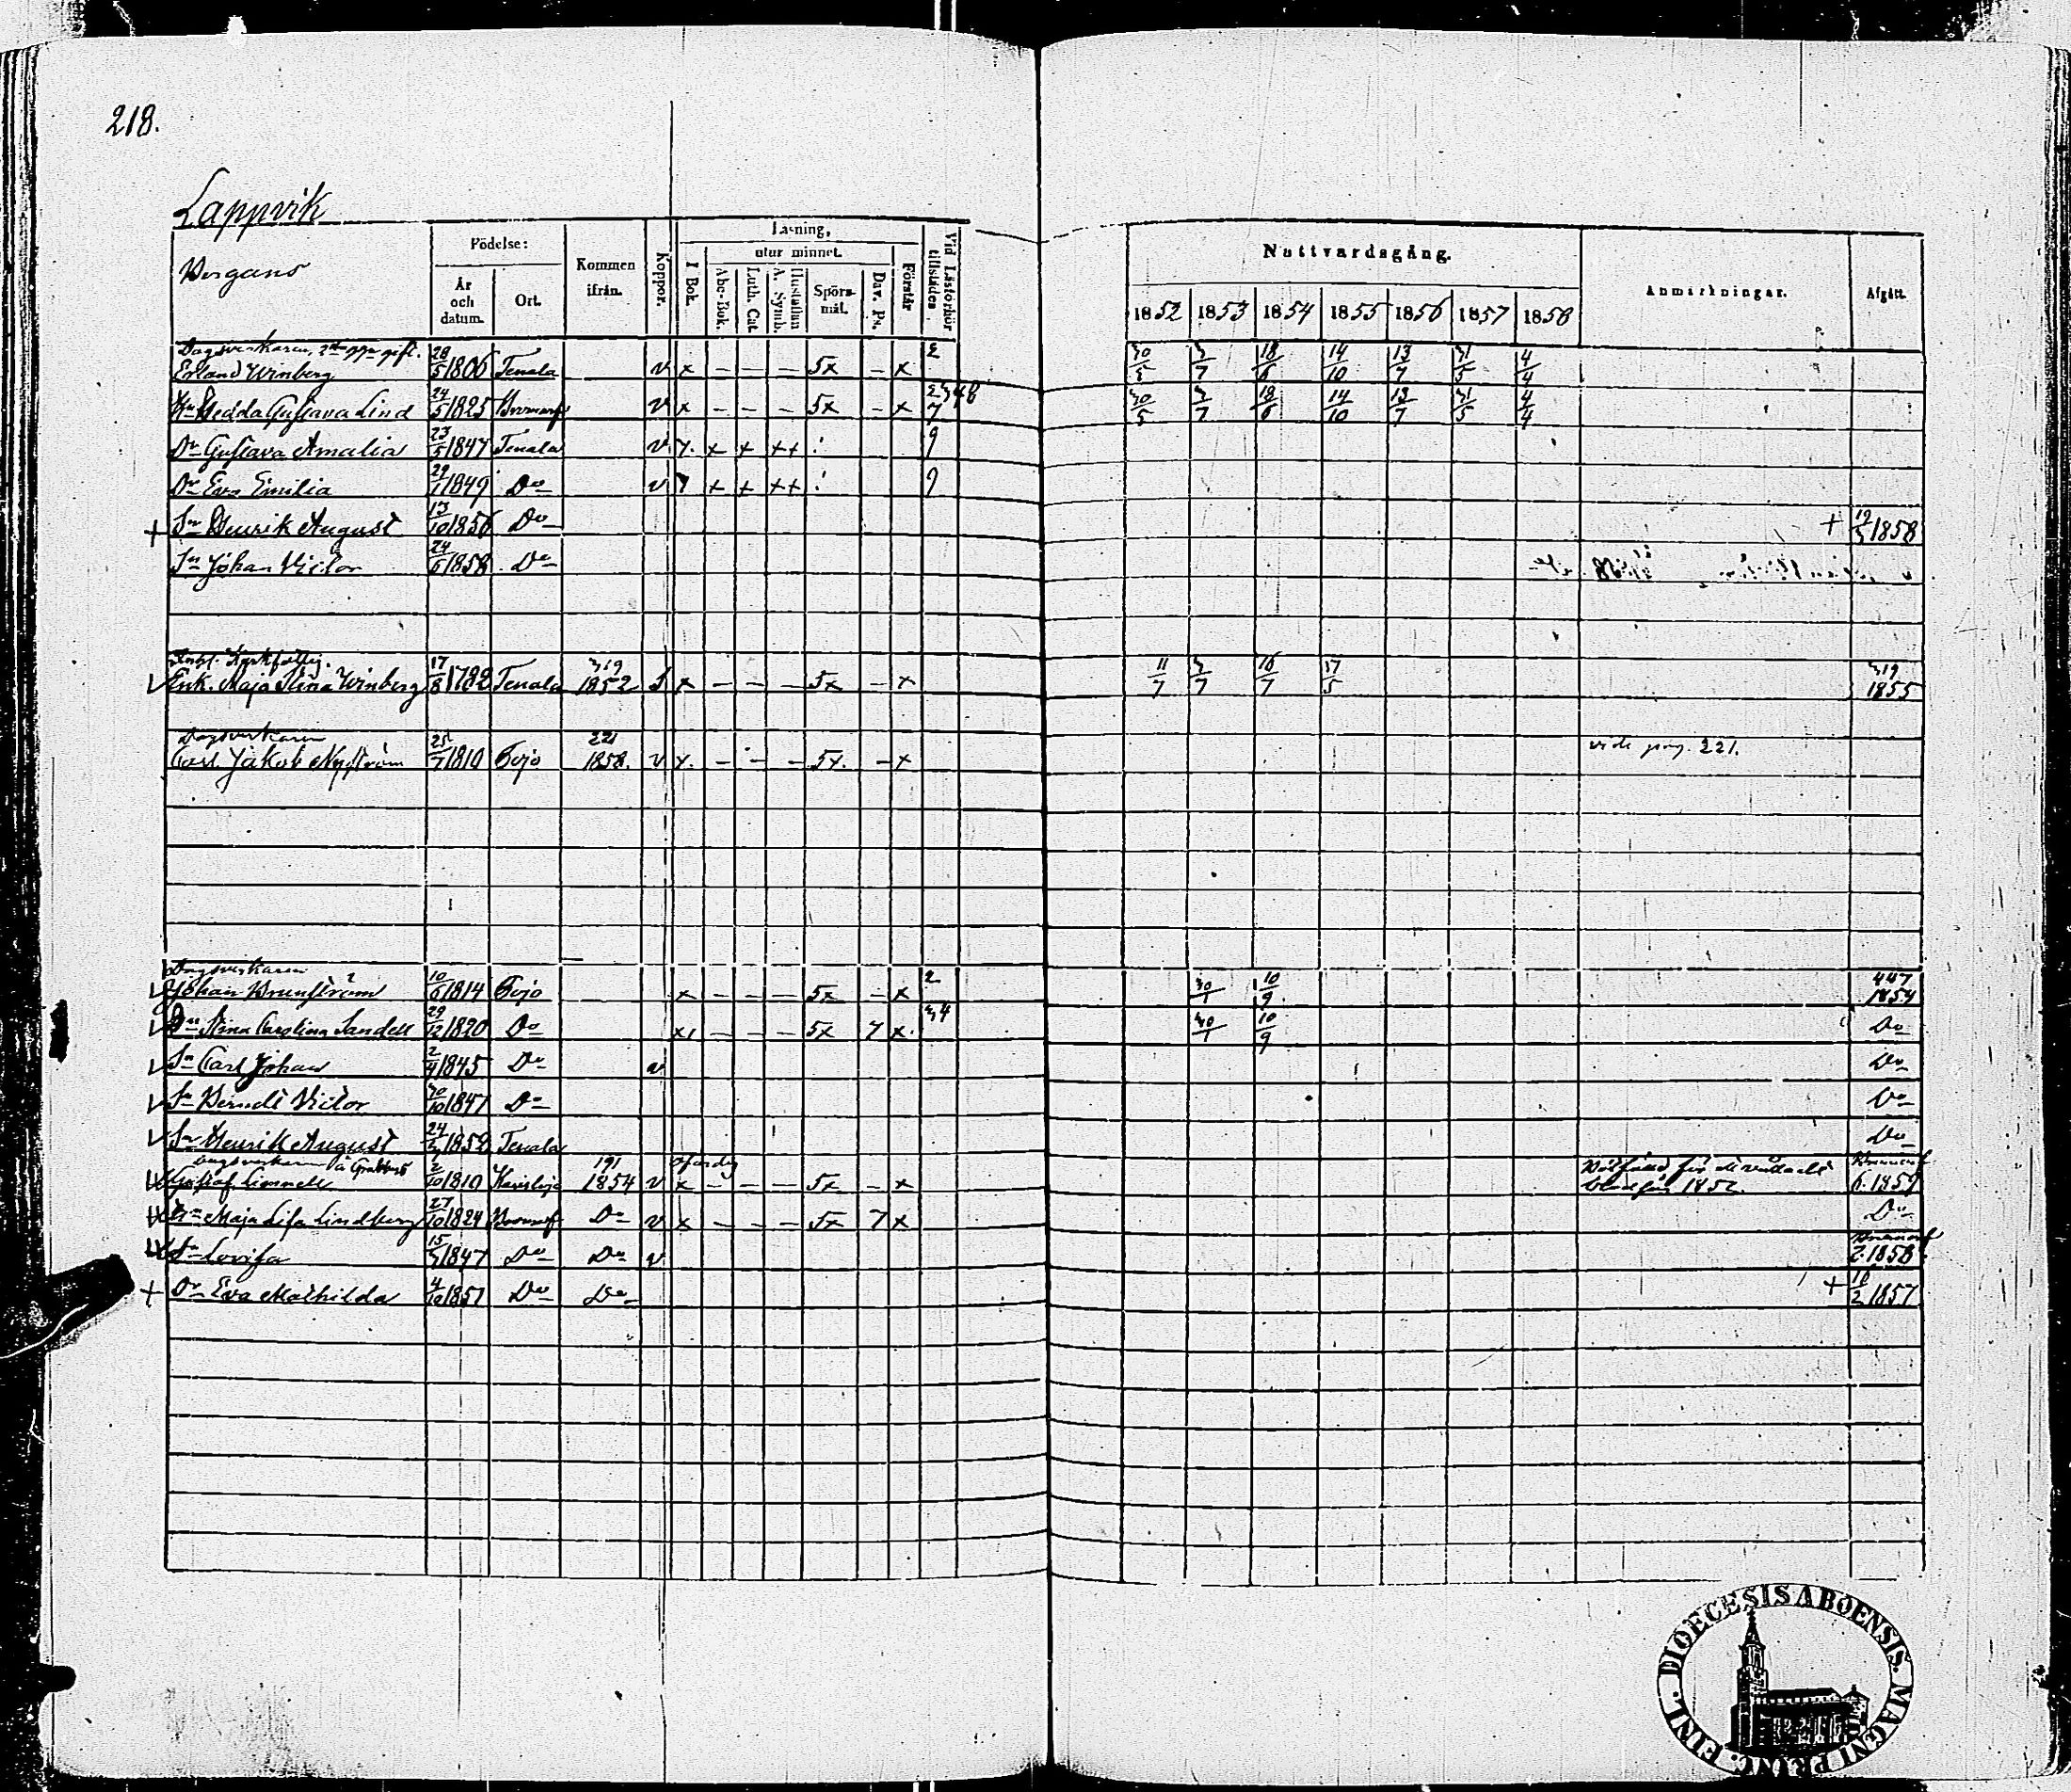 218.
Lappvik
Födelse: Kommen ifrån. Koppor. Läsning, Vid Läsförhör tillstädes. Nattvardsgång. Anmärkningar. Afgått.
År och datum. Ort. I Bok. utur minnet. Förstår
Abc-Bok. Luth. Cat. Hustaflan A. Symb. Spörsmål. Dav. Ps.
1852 1853 1854 1855 1856 1857 1858
Dagsverkaren, gift.
Erland Winberg 28/5 1806 Tenala v x – – – 5x – x 2 30/5 3/7 18/6 14/10 13/7 31/5 4/4
Hu Hedda Gustava Lind 24/5 1825 Bromarf v x – – – 5x – x 30/5 3/7 18/6 14/10 13/7 31/5 4/4
Dr Gustava Amalia 23/5 1847 Tenala v 7. + + ++ 9
Dr Eva Emilia 29/1 1849 Do v 7 + + ++ 9
+ Sn Henrik August 13/10 1856 Do + 19/3 1858
Sn Johan Victor 24/6 1858 Do
Enk. Maja Stina Winberg 17/8 1782 Tenala 319 1852 S x – – – 5x – x 11/7 3/7 16/7 17/5 319 1855
Dagsverkaren
Carl Jakob Nyström 25/7 1810 Pojo 221 1858. v x. – – – 5x. – x vide pag. 221.
Dagsverkaren
Johan Brunström 10/6 1814 Pojo x – – – 5x – x 2 30/1 10/9 447 1854
Hu Stina Carolina Sandell 29/12 1820 Do x – – – 5x 7 x 34 30/1 10/9 Do
Sn Carl Johan 2/4 1845 Do v Do
Sn Berndt Victor 30/10 1847 Do Do
Sn Henrik August 24/3 1852 Tenala Do
Dagsverkaren
Gustaf Limnell 2/10 1810 Karislojo 191 1854 v x – – – 5x – x 1852. Bromarf 6. 1857
Hu Maja Lisa Lindberg 27/10 1824 Bromarf Do v x – – – 5x 7 x Do
Dr Lovisa 15/3 1847 Do Do v Bromarf 2. 1858
+ Dr Eva Mathilda 4/10 1851 Do Do + 10/2 1857
DIOECESIS ABOENSIS. MAGNI PRINC. FINL.